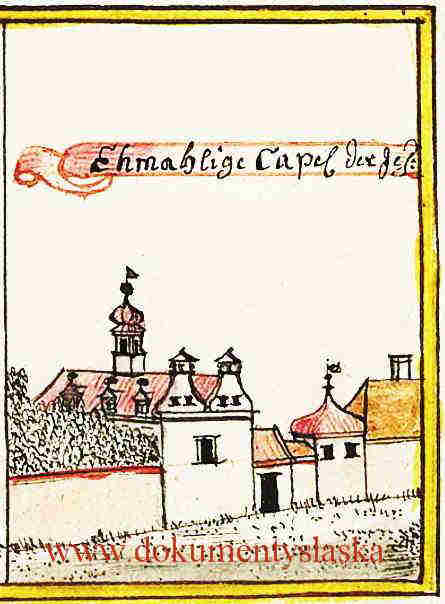 Ehmahlige Capel der Jes:
www.dokumentyslaska